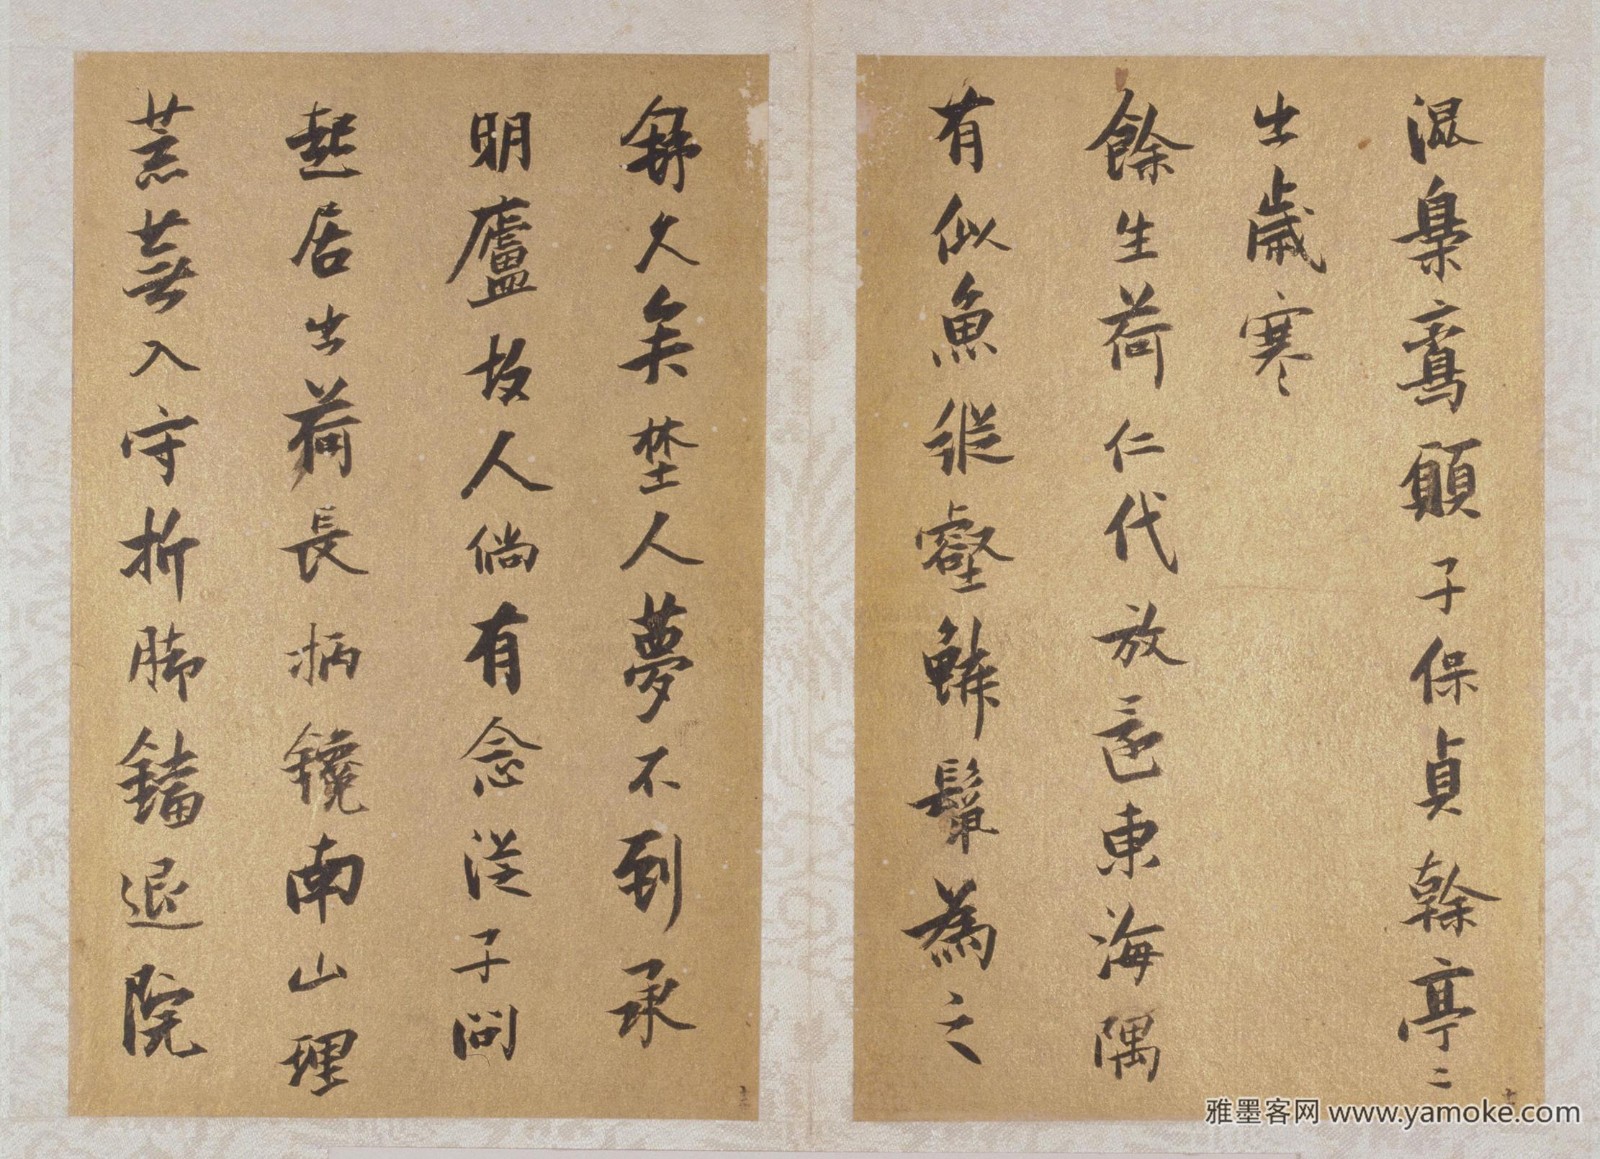 混梟鸞願子保貞榦亭〻
出歲寒
餘生荷仁代放還東海隅
有似魚縱壑鱗鬣為之
舒久矣埜人夢不到承
明廬故人倘有念從子問
起居出荷長柄鑱南山理
荒蕪入守折腳鐺退院
雅墨客网 www.yamoke.com